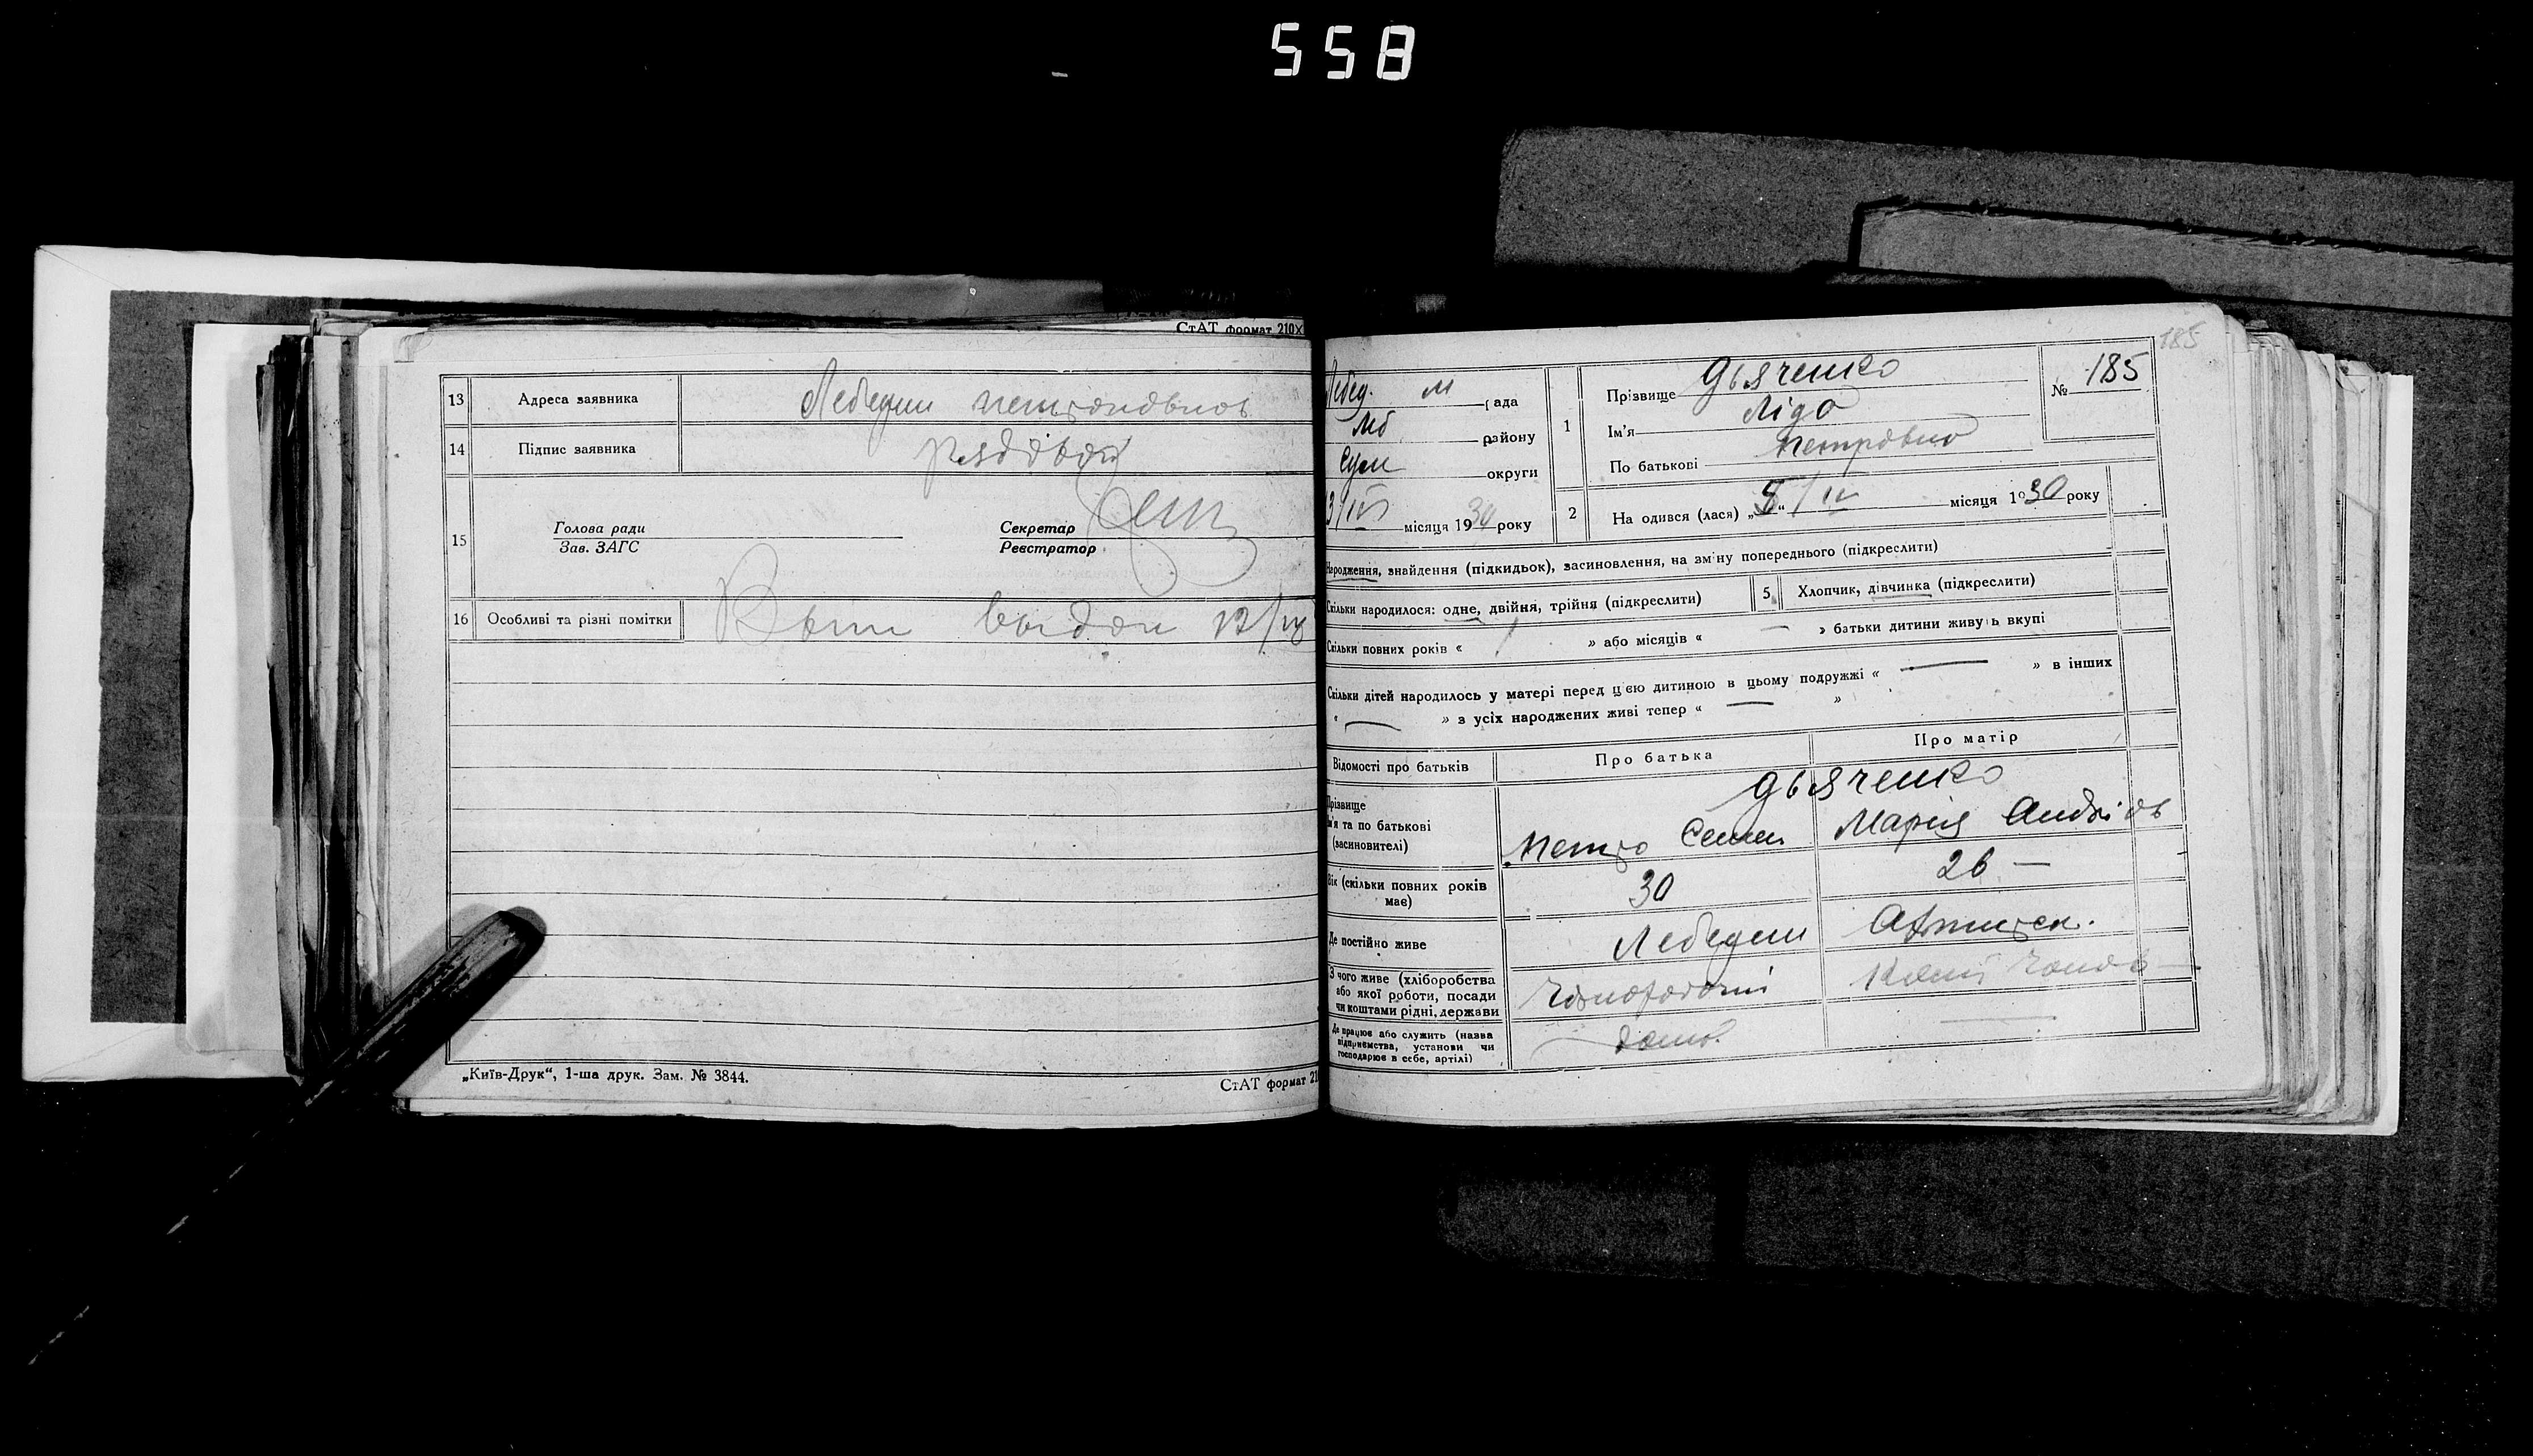 558
СтАТ формат 210×
13 Адреса заявника Лебедин
14 Підпис заявника
15 Голова ради Зав. ЗАГС Секретар Реєстратор
16 Особливі та різні помітки Вып выдан 13/IV
„Київ-Друк“, 1-ша друк. Зам. № 3844.
СтАТ формат 21
185
Лебед. м рада
Лб району
Сум округи
13/IV місяця 1930 року
1 Прізвище Дьяченко
Ім'я Ліда
По батькові Петровна
№ 185
2 На одився (лася) „8“ / IV місяця 1930 року
Народження, знайдення (підкидьок), засиновлення, на зміну попереднього (підкреслити)
Скільки народилося: одне, двійня, трійня (підкреслити) 5 Хлопчик, дівчинка (підкреслити)
Скільки повних років « 1 » або місяців « — » батьки дитини живуть вкупі
Скільки дітей народилось у матері перед цією дитиною в цьому подружжі « — » в інших
« — » з усіх народжених живі тепер « — »
Відомості про батьків Про батька Про матір
Прізвище Дьяченко
Ім'я та по батькові (засиновителі) Петро Семен Мария Андріів
Вік (скільки повних років має) 30 26 —
Де постійно живе Лебедин
З чого живе (хліборобства або якої роботи, посади чи коштами рідні, держави Чорнороб
Де працює або служить (назва підприємства, установи чи господарює в себе, артілі) —